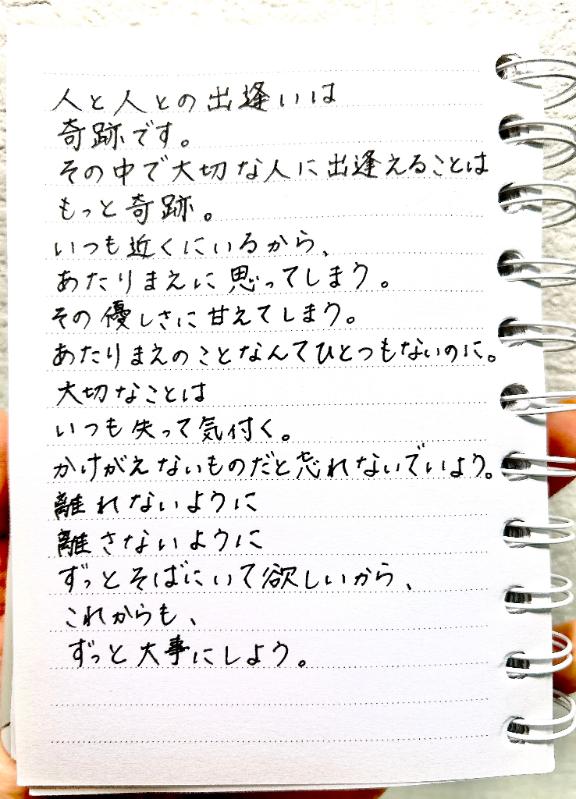 人と人との出逢いは
奇跡です。
その中で大切な人に出逢えることは
もっと奇跡。
いつも近くにいるから、
あたりまえに思ってしまう。
その優しさに甘えてしまう。
あたりまえのことなんてひとつもないのに。
大切なことは
いつも失って気付く。
かけがえないものだと忘れないでいよう。
離れないように
離さないように
ずっとそばにいて欲しいから、
これからも、
ずっと大事にしよう。